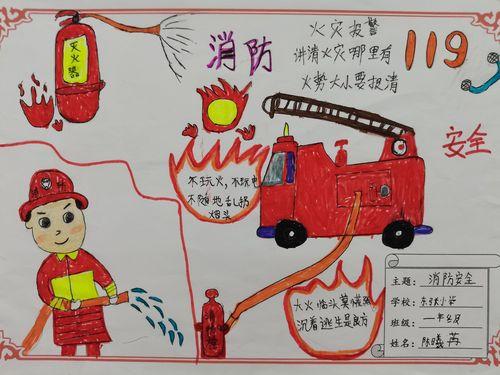 灭火器
消防
火灾报警
讲清火灾哪里有
火势大小要报清
119
安全
不玩火,不玩电
不随地乱扔
烟头
大火临头莫慌张
沉着逃生是良方
主题: 消防安全
学校:
班级: 一年
姓名: 陈曦苒